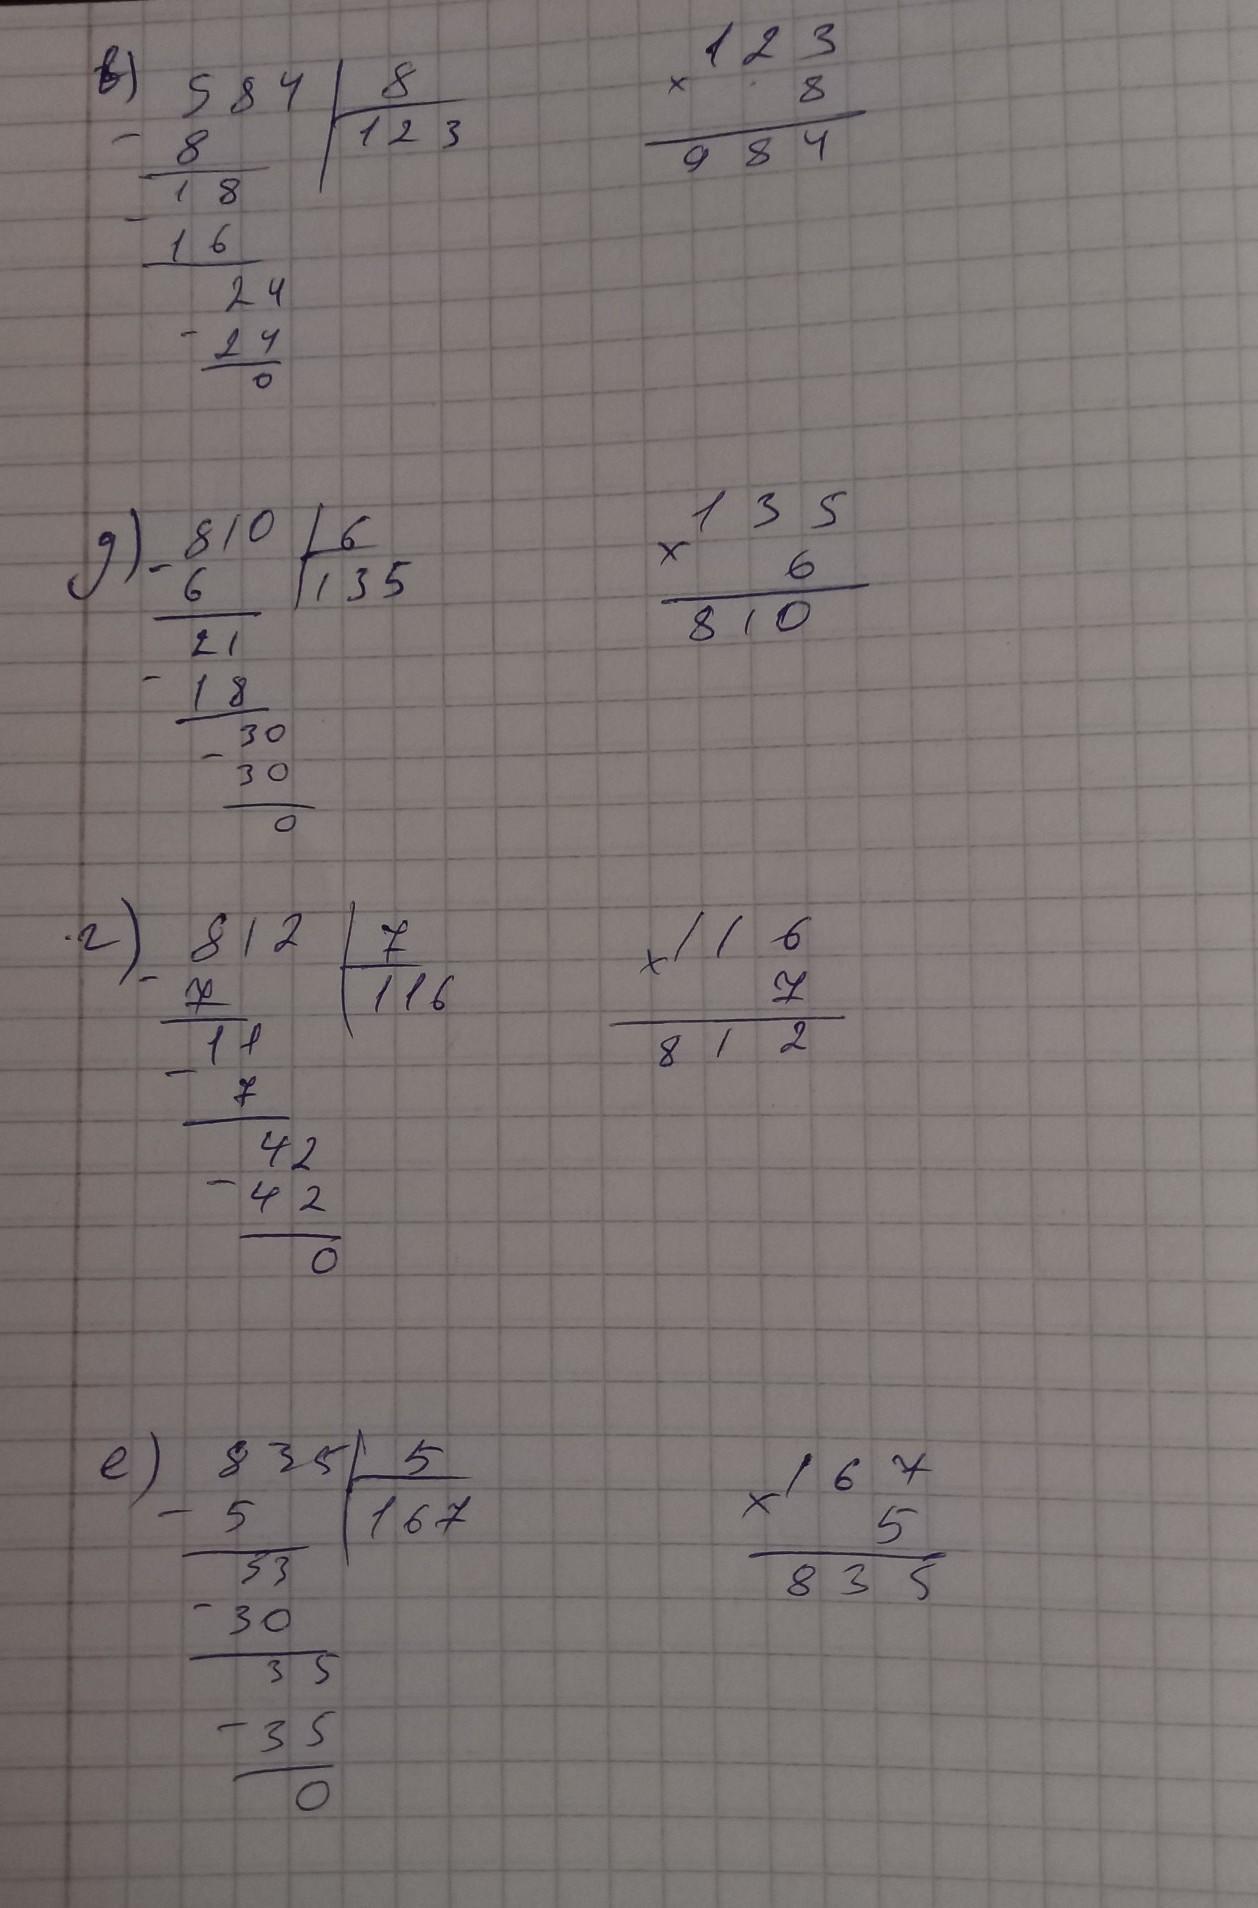 в) 584 | 8
- 8 | 123
18
- 16
24
- 24
0
123
× 8
984
д) - 810 | 6
6 | 135
21
- 18
30
- 30
0
135
× 6
810
г) - 812 | 7
7 | 116
11
- 7
42
- 42
0
× 116
7
812
е) 835 | 5
- 5 | 167
53
- 30
35
- 35
0
× 167
5
835